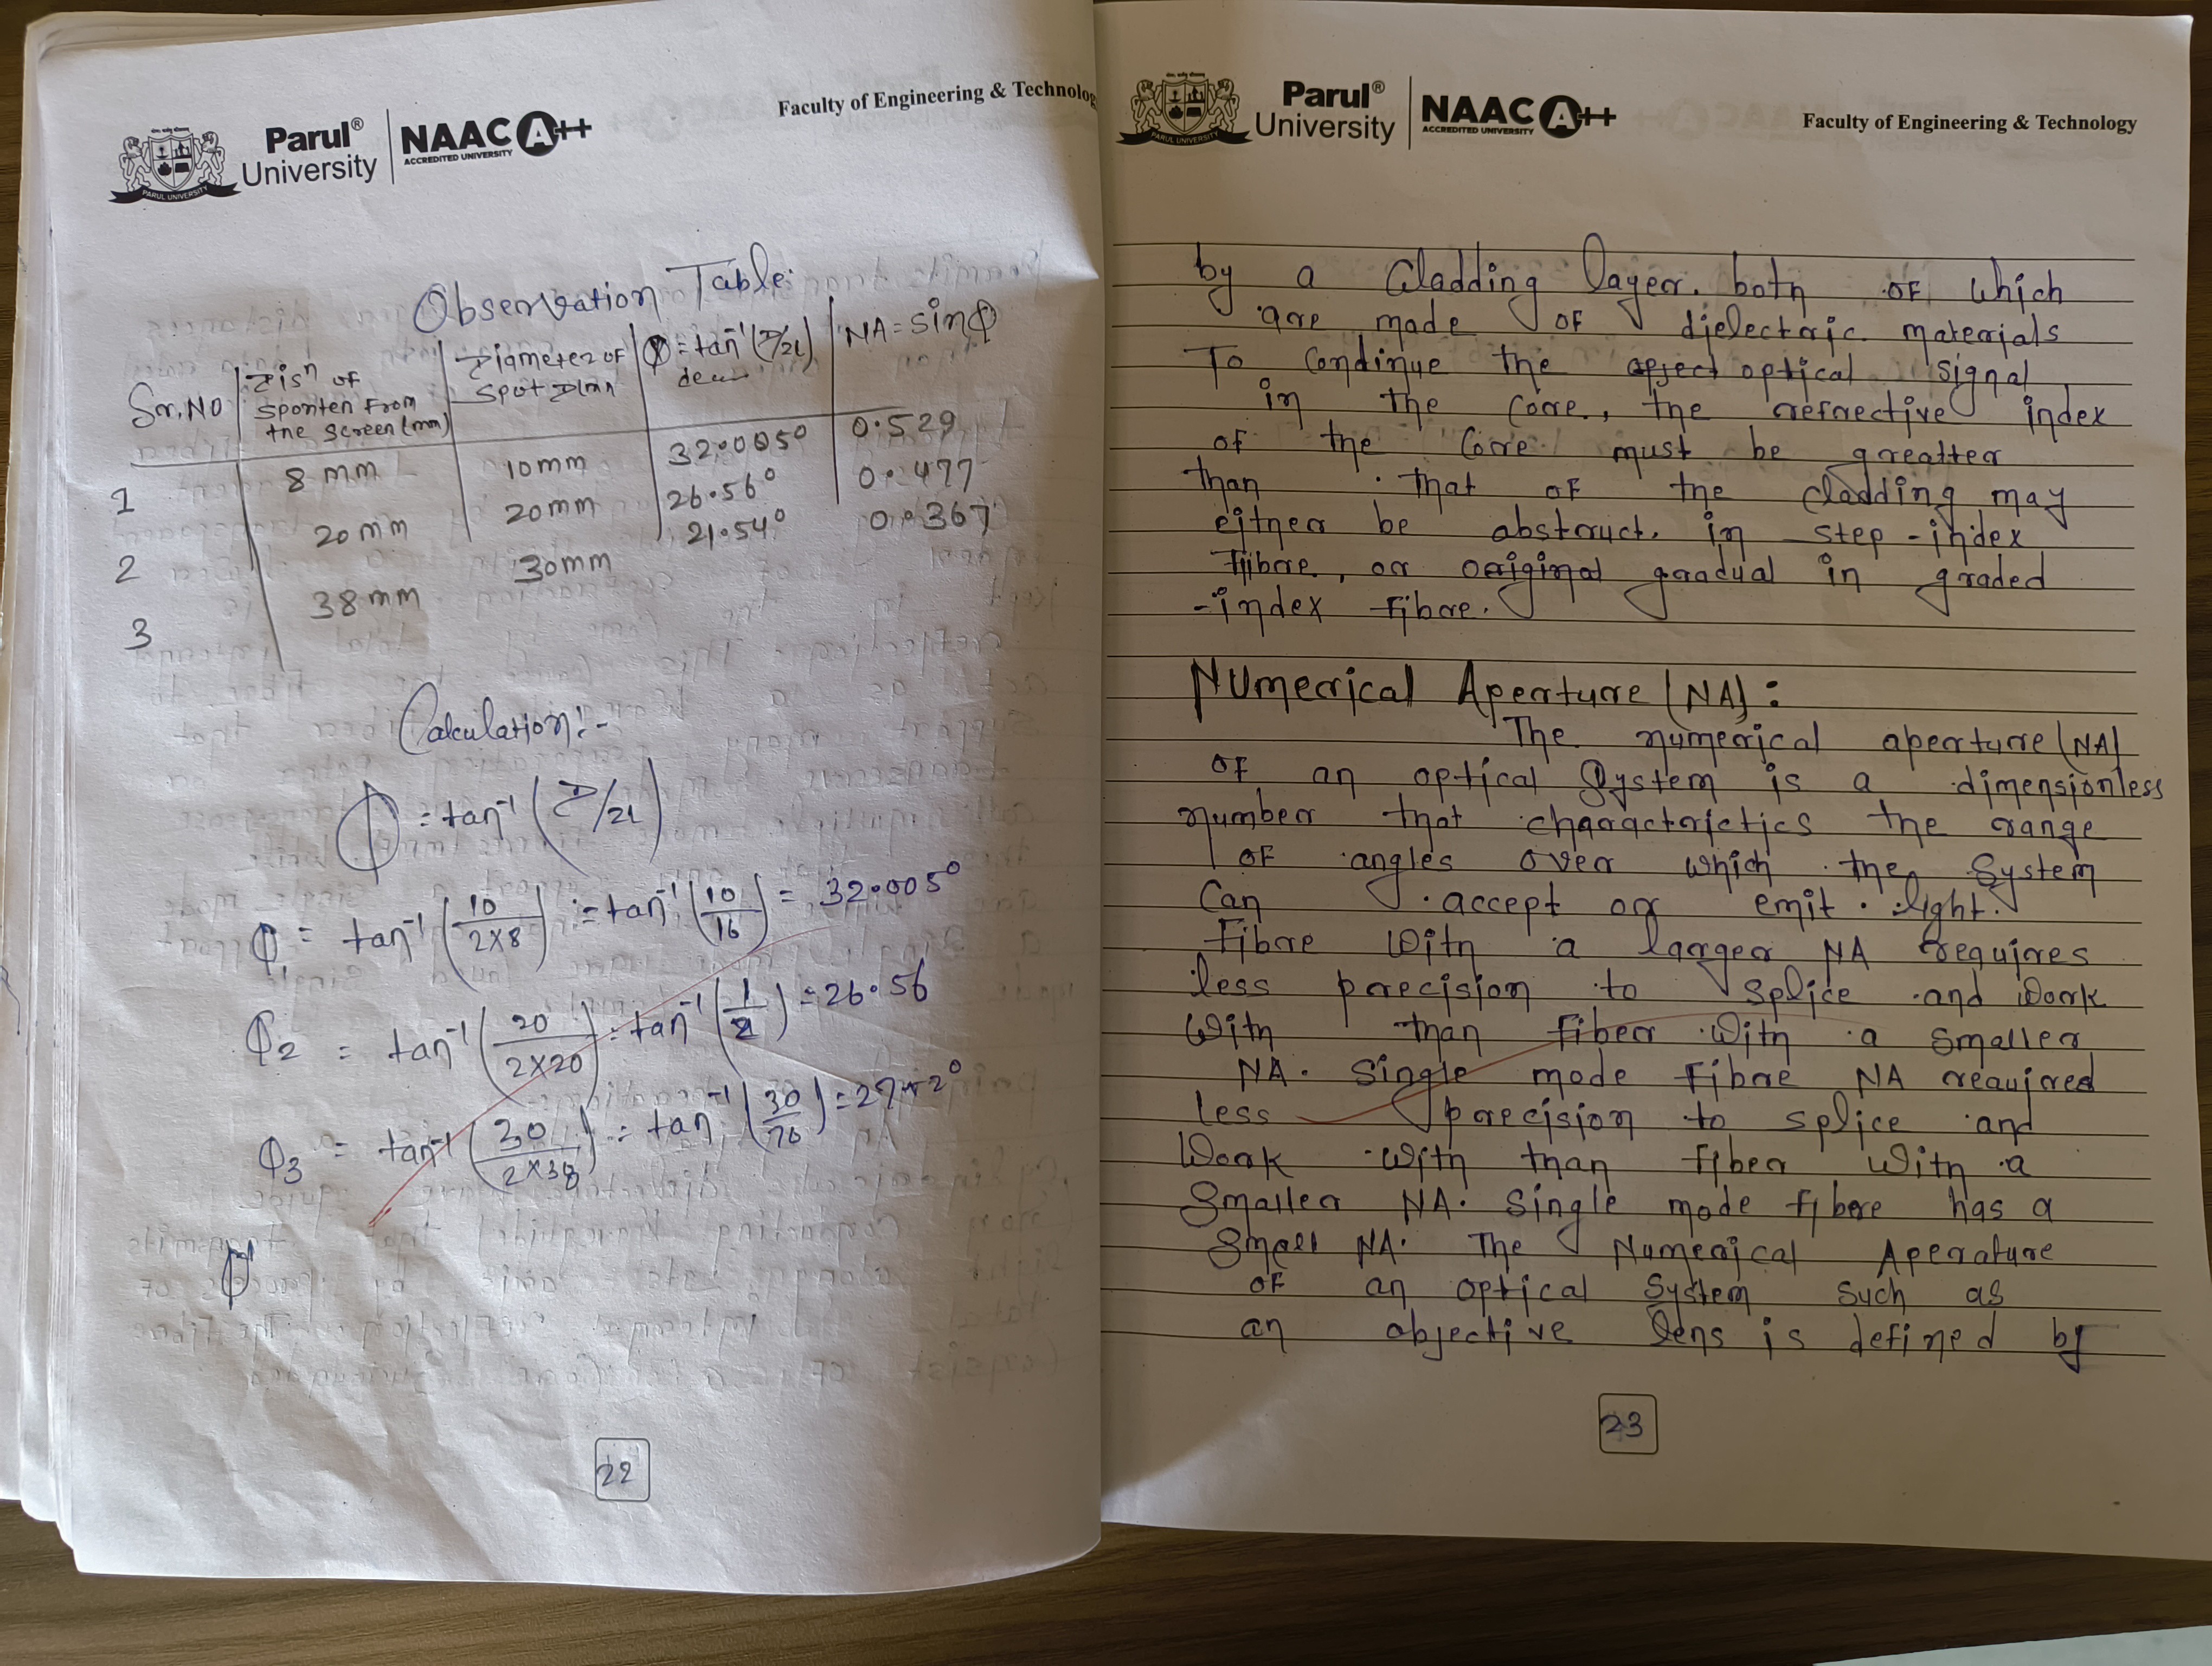 Parul® University
NAAC A++
ACCREDITED UNIVERSITY
PARUL UNIVERSITY
Faculty of Engineering & Technolog
Observation Table:
Sr.NO
Disⁿ of
sponten From
the screen (mm)
Diameter of
Spot D(mn
Φ = tan⁻¹ (D/2L)
NA = sinΦ
1 8 mm 10mm 32.005° 0.529
2 20mm 20mm 26.56° 0.477
3 38mm 30mm 21.54° 0.367
Calculation:-
Φ = tan⁻¹ (D/2L)
Φ₁ = tan⁻¹ (10/2×8) = tan⁻¹ (10/16) = 32.005°
Φ2 = tan⁻¹ (20/2×20) = tan⁻¹ (1/2) = 26.56
Φ3 = tan⁻¹ (30/2×38) = tan⁻¹ (30/76) =
22
Parul® University
NAAC A++
ACCREDITED UNIVERSITY
PARUL UNIVERSITY
Faculty of Engineering & Technology
by a Cladding layer. both of which
are made of dielectric materials
To Condinue the optical signal
in the core, the refrective index
of the Core must be greatter
than that of the cladding may
either be abstruct. in step-index
Fibre, or original gradual in graded
-index Fibre.
Numerical Aperture (NA):
The numerical aperture (NA)
of an optical System is a dimensionless
number that charactrictics the range
of angles over which the System
Can accept or emit light.
Fibre with a larger NA requires
less precision to splice and work
with than fiber with a smaller
NA. Single mode Fibre NA reauired
less precision to splice and
Work with than fiber with a
Smaller NA. Single mode fibre has a
Small NA. The Numerical Aperature
of an optical System such as
an objective lens is defined by
23